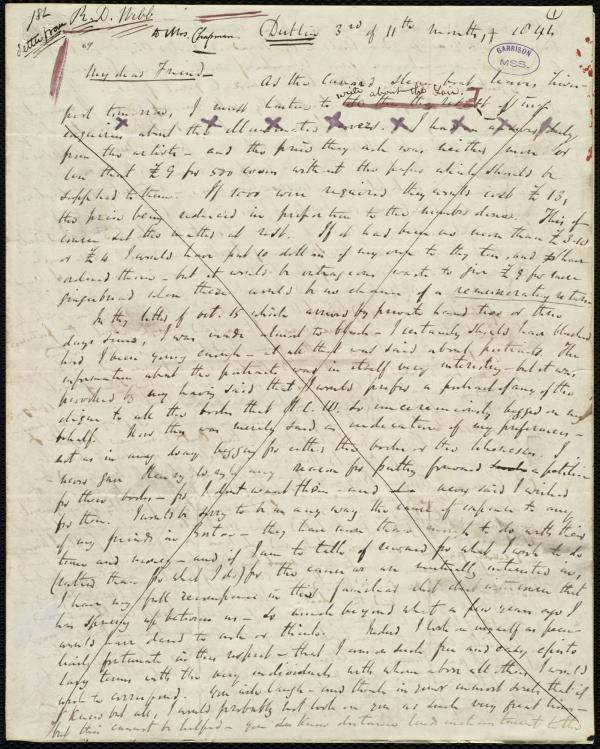 184 R. D. Webb
Letter from
To Mrs. Chapman
(Dublin 3rd of 11th month, 1844
(1
GARRISON
MSS.
My dear Friend—
As the Cunard Steam boat leaves Liver-
write about the Fair.
pool tomorrow, I must hasten to of my
enquiries about the illuminated covers. I had an answer only
from the artists – and the price they ask was neither more or
less than £9 for 500 covers without the paper which should be
supplied to them. If 1000 were required they would cost £13,
the price being reduced in proportion to the number done. This of
course set the matter at rest. If it had been no more than £3-10
or £4 I would have put 10 dollars of my own to thy ten, and have
ordered them – but it would be outrageous waste to give £9 for mere
gingerbread when there would be no chance of a remunerating return
In thy letter of Oct. 15 which arrived by private hand two or three
days since, I was made almost to blush – I certainly should have blushed
had I been young enough – at all that was said about portraits. The
information about the portraits was in itself very interesting – but it was
provoked by my having said that I would prefer a portrait of any of the
clique to all the books that H. C. W. so unceremoniously begged on my
behalf. Now this was merely said in indication of my preferences –
not as in any way begging for either the books or the likenesses. I
never gave Henry Wright any reason for putting forward a petition
for these books – for I don't want them – and never said I wished
for them. I would be sorry to be in any way the cause of expense to any
of my friends in Boston – they have more than enough to do with their
time and money – and if I am to talk of reward for what I wish to do
(rather than for what I do) for the cause we are mutually interested in,
I have my full recompense in the familiar chit chat intercourse that
has sprung up between us – so much beyond what a few years ago I
would have dared to ask or think. Indeed I look on myself as pecu-
liarly fortunate in this respect – that I am on such free and easy, episto
lary terms with the very individuals with whom above all others I would
wish to correspond. You will laugh – and think in your inmost souls that if
I knew but all, I would probably not look on you as such very great lions –
but this cannot be helped – you know distance lends enchantment to the